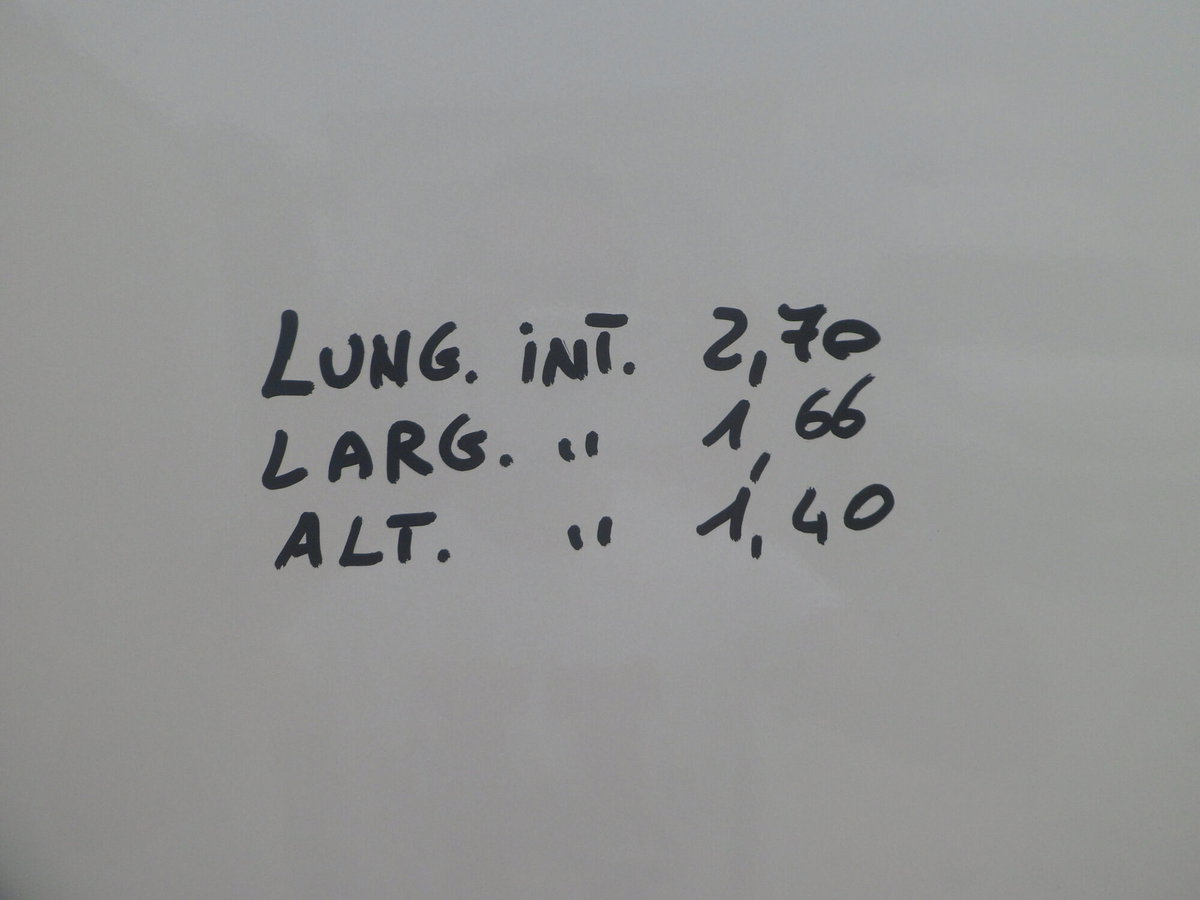 LUNG. iNT. 2,70
LARG. " 1,66
ALT. " 1,40